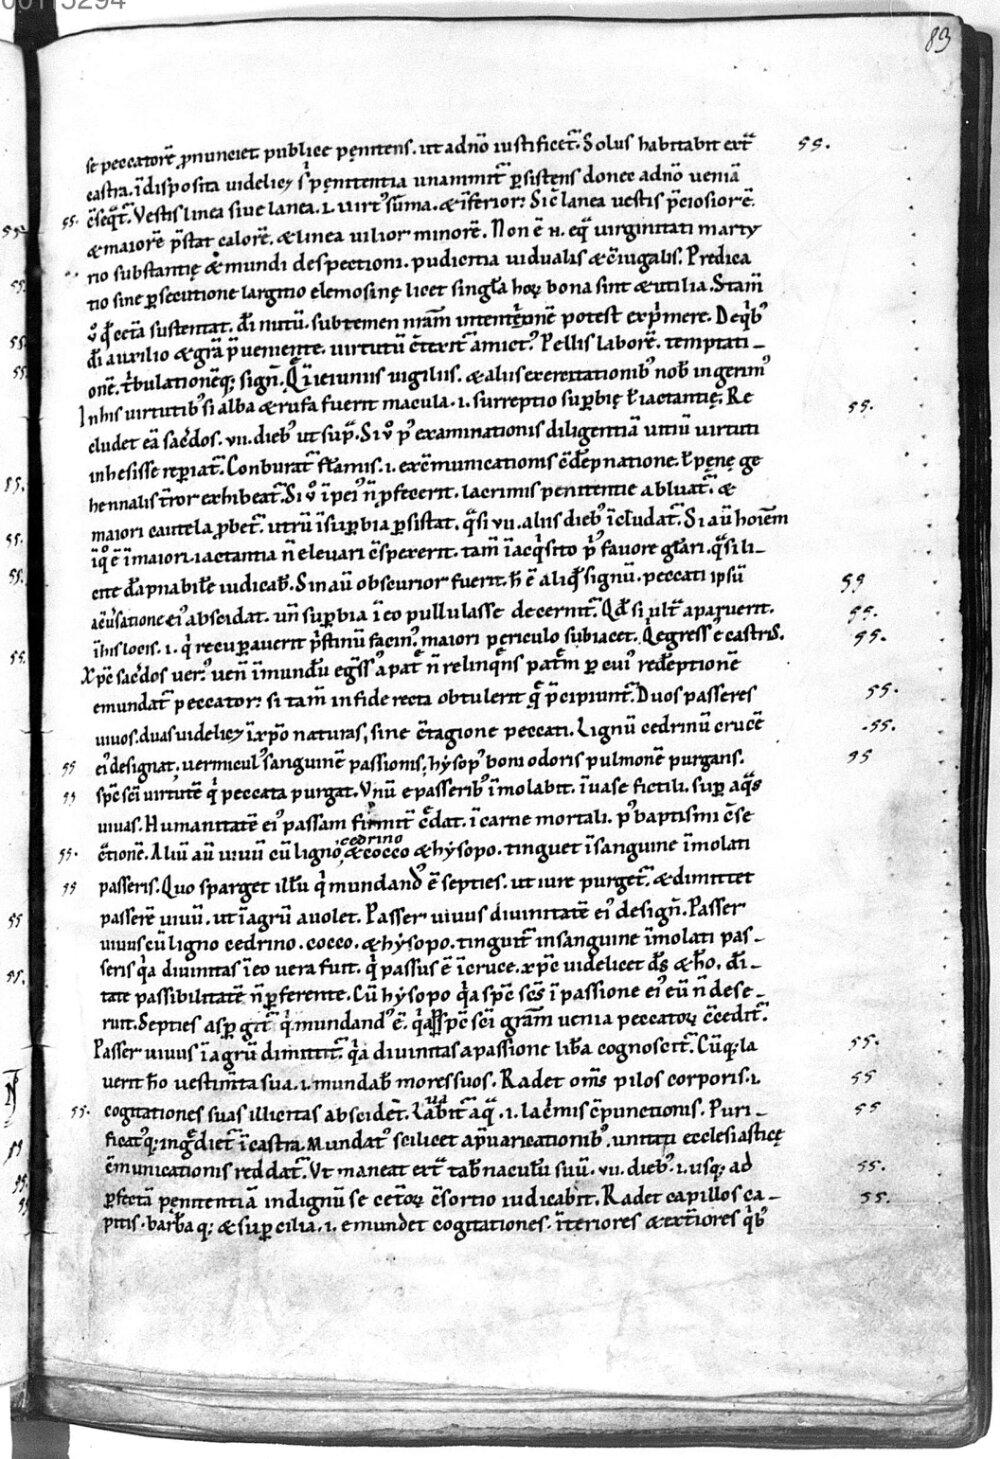 00115294
83
se peccatorē ꝓnunciet. publice pęnitens. ut ad n̄o iustificet᷑. Solus habitabit ext᷑
castra. īdisposita uidelicꝫ s; pęnitentia unanimit᷑ ꝑsistens donec ad n̄o ueniā
c̄seq̄t᷑. Vestis linea siue lanea. ı. uirtꝰ sūma. & īferior: Sic̄ lanea uestis p̄ciosiorē.
& maiorē p̄stat calorē. & linea uilior minorē. Non ē n. eq̄ uirginitati marty
rio substantię & mundi despectioni. pudicitia uidualis & c̄iugalis. Predica
tio sine ꝑsecutione largitio elemosinę licet singl̄a hoꝝ bona sint & utilia. Stam̄
ꝟ q̄ ectā sustentat. d̄i nutū. subtemen nr̄am intentionē potest exp̄mere. De qͥbꝰ
d̄i auxilio & gr̄a p̄ueniente. uirtutū c̄texit᷑ amictꝰ. Pellis laborē. temptati-
onē. tͥbulationēq; sign̄. Q̄ īieiuniis uigiliis. & aliis exercitationibꝰ nob̄ ingerimꝰ
In his uirtutibꝰ si alba & rufa fuerit macula. ı. surreptio suꝑbię ł iactantię: Re
cludet eā sac̄dos. vii. diebꝰ ut sup̄. Si ꝟ pꝰ examinationis diligentiā uitiū uirtuti
inhesisse reꝑiat᷑. Conburat᷑ flāmis. ı. exc̄municationis c̄dēpnatione. ł pęnę ge
hennalis t̄ror exhibeat᷑. Si ꝟ īpeiꝰ n̄ ꝓfecerit. lacrimis penitentie abluat᷑. &
maiori cautela ꝓbet᷑. utrū īsuꝑbia ꝑsistat. q̄si vii. aliis diebꝰ īcludat᷑. Si aū hoīem
īqͦ ē īmaiori iactantia n̄ eleuari c̄spexerit. tam̄ īacqͥsito pͥ fauore gl̄ari. q̄si li-
cite dāpnabile iudicab̄. Sin aū obscurior fuerit. h̄ ē aliqd̄ signū. peccati ipsū
acc̄satione eiꝰ abscidat. un̄ suꝑbia īeo pullulasse decernit᷑. Qd̄ si ult᷑ aparuerit.
īhis locis. ı. qͥ recuꝑauerit p̄stinū facinꝰ. maiori periculo subiacet. Qͥ egressꝰ ē castris.
Xp̄c sac̄dos uerꝰ. uen̄ īmundū eg̃ssꝰ a pat̃ n̄ relinqn̄s pat̄m ꝑ cuiꝰ redēptionē
emundat᷑ peccator: si tam̄ in fide recta obtulerit q̄ p̄cipiunt᷑. Duos passeres
uiuos. duas uidelicꝫ īxp̄o naturas, sine c̄tagione peccati. Lignū cedrinū crucē
eiꝰ designat. uermiculꝰ sanguinē passionis, hẏsopꝰ boni odoris pulmonē purgans.
sp̄c sc̄i uirtutē qͥ peccata purgat. Vnū e passeribꝰ īmolabit. īuase fictili. suꝑ aq̄s
uiuas. Humanitatē eiꝰ passam firmit᷑ c̄dat. ī carne mortali. pꝰ baptismi c̄se
c̄tionē. Aliū aū uiuū cū ligno & cocco & hẏsopo. tinguet īsanguine īmolati
cedrino
passeris. Quo sparget illū qͥ mundandꝰ ē septies. ut iure purget᷑. & dimittet
passerē uiuū. ut īagrū auolet. Passer uiuus diuinitatē eiꝰ design̄. Passer
uiuus cū ligno cedrino. cocco. & hẏsopo. tinguit᷑ insanguine īmolati pas-
seris qͥa diuinitas īeo uera fuit. qͥ passus ē īcruce. xp̄c uidelicet d̄s & h̄o. d̄i-
tate passibilitatē n̄ ꝑferente. Cū hẏsopo qͥa sp̄c sc̄s ī passione eiꝰ eū n̄ dese-
ruit. Septies asꝑgit᷑ qͥ mundandꝰ ē. qͥa sp̄c sc̄i gr̄am uenia peccatoꝝ c̄cedit᷑.
Passer uiuus īagrū dimittit᷑. qͥa diuinitas a passione lib̄a cognoscit᷑. Cūq; la
uerit h̄o uestim̄ta sua. ı. mundab̄ mores suos. Radet om̄s pilos corporis. ı.
cogitationes suas illicitas abscidet᷑. Lauabit᷑ aq̄. ı. lac̄mis c̄punctionis. Puri-
ficatꝰq; ingͥdiet᷑ īcastra. Mundatꝰ scilicet a p̄uaricationibꝰ. unitati ecclesiasticę
c̄municationis reddat᷑. Vt maneat ext᷑ tab̄naculū suū. vii. diebꝰ. ı. usq; ad
ꝑfectā pęnitentiā indignū se cet̄oꝝ c̄sortio iudicabit. Radet capillos ca-
pitis. barbā q; & suꝑcilia. ı. emundet cogitationes. īteriores & ext̄iores qͥbꝰ